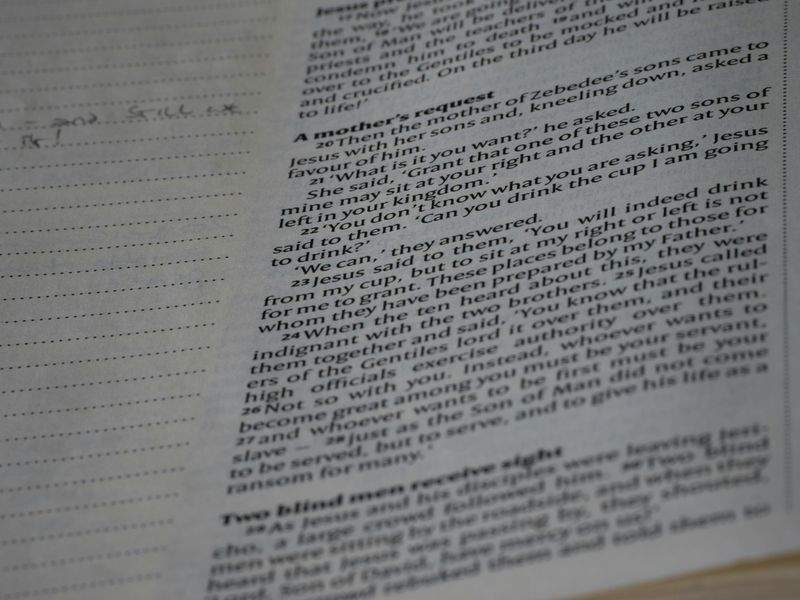 - and still
the way, he took
them, 18 'We are going
Son of Man will be delivered
priests and the teachers of the
condemn him to death 19 and will
over to the Gentiles to be mocked and
and crucified. On the third day he will be raised
to life!'
A mother's request
20 Then the mother of Zebedee's sons came to
Jesus with her sons and, kneeling down, asked a
favour of him.
21 'What is it you want?' he asked.
She said, 'Grant that one of these two sons of
mine may sit at your right and the other at your
left in your kingdom.'
22 'You don't know what you are asking,' Jesus
said to them. 'Can you drink the cup I am going
to drink?'
'We can,' they answered.
23 Jesus said to them, 'You will indeed drink
from my cup, but to sit at my right or left is not
for me to grant. These places belong to those for
whom they have been prepared by my Father.'
24 When the ten heard about this, they were
indignant with the two brothers. 25 Jesus called
them together and said, 'You know that the rul-
ers of the Gentiles lord it over them, and their
high officials exercise authority over them.
26 Not so with you. Instead, whoever wants to
become great among you must be your servant,
27 and whoever wants to be first must be your
slave – 28 just as the Son of Man did not come
to be served, but to serve, and to give his life as a
ransom for many.'
Two blind men receive sight
29 As Jesus and his disciples were leaving Jeri-
cho, a large crowd followed him. 30 Two blind
men were sitting by the roadside, and when they
heard that Jesus was passing by, they shouted,
'Lord, Son of David, have mercy on us!'
rebuked them and told them to